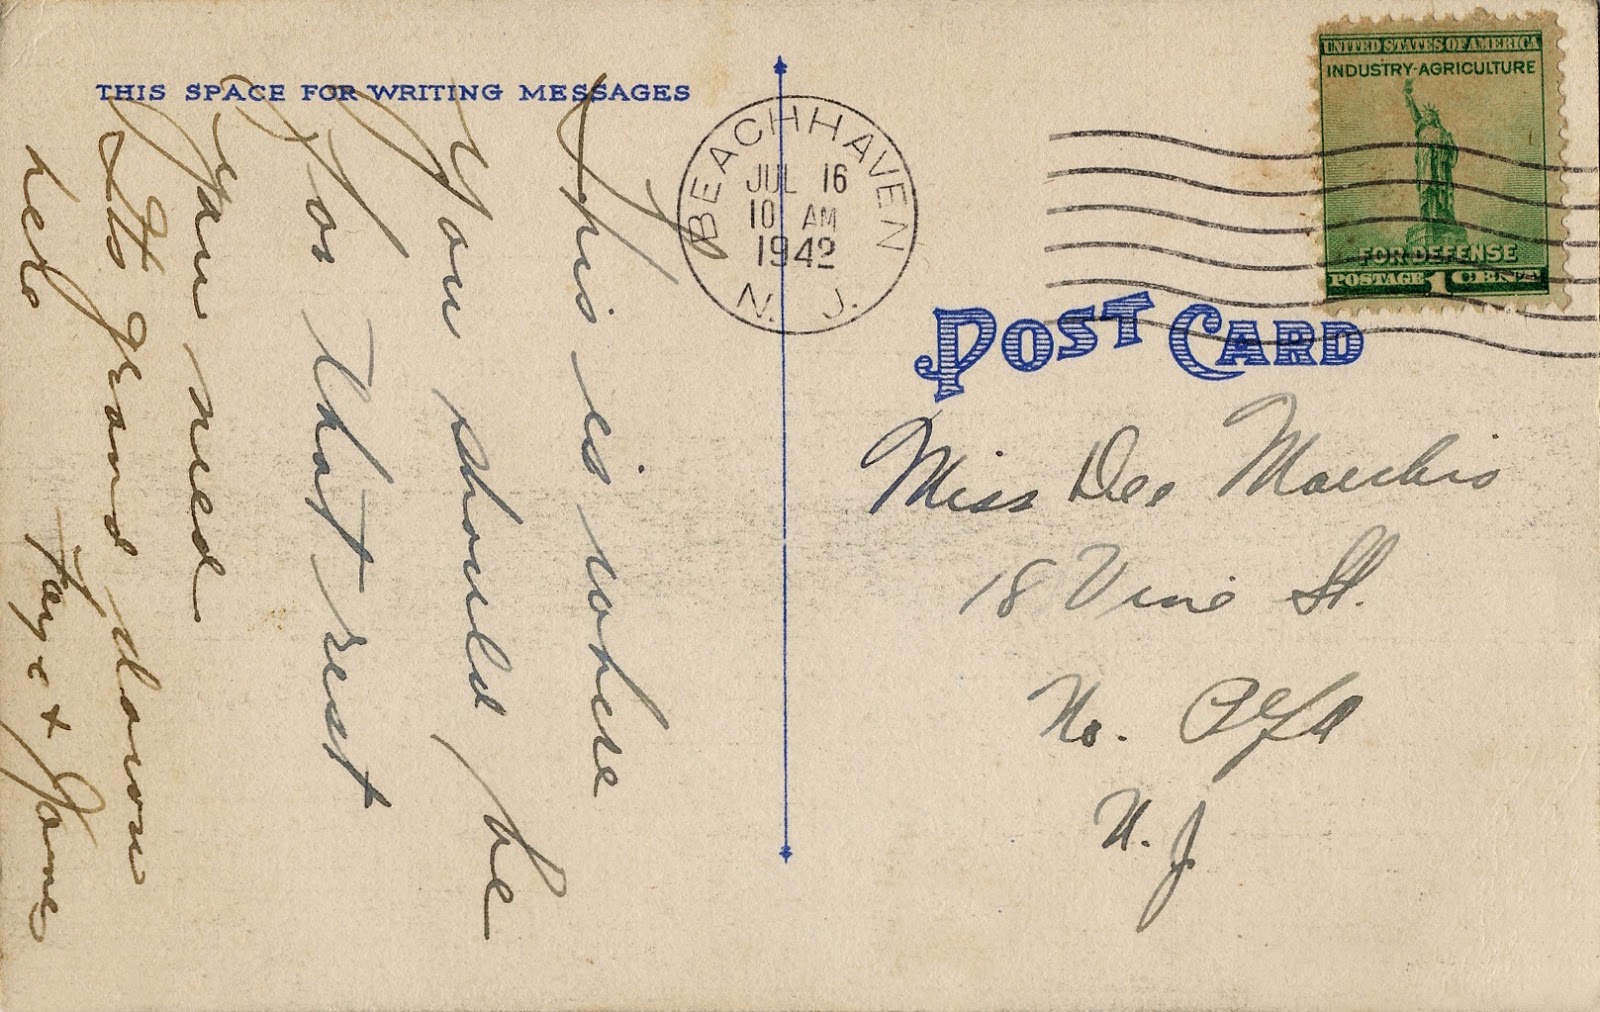 THIS SPACE FOR WRITING MESSAGES
This is where
You should be
For that rest
you need
Its grand down
here
Faye + Jane
BEACH HAVEN
JUL 16
10 AM
1942
N. J.
UNITED STATES OF AMERICA
INDUSTRY·AGRICULTURE
FOR DEFENSE
POSTAGE 1 CENT
POST CARD
Miss Dee
18 Vine St.
No.
N. J.